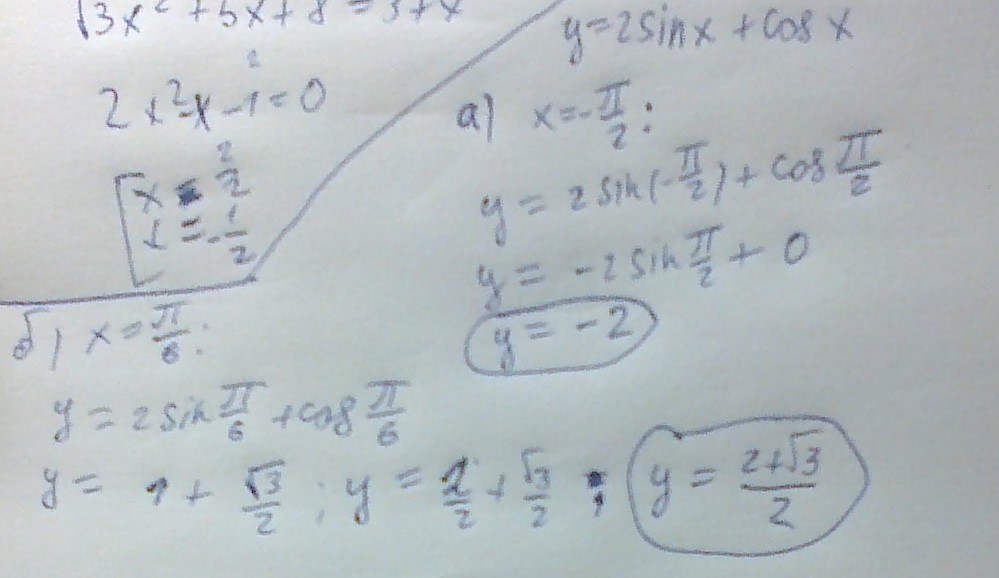 √3x² + 5x + 8 = 3 + x
2x² - x - 1 = 0
x = 2/2
x = -1/2
y = 2sinx + cos x
а) x = -π/2:
y = 2 sin(-π/2) + cos π/2
y = -2 sin π/2 + 0
y = -2
б) x = π/6:
y = 2 sin π/6 + cos π/6
y = 1 + √3/2 ; y = 2/2 + √3/2 ; y = (2+√3)/2